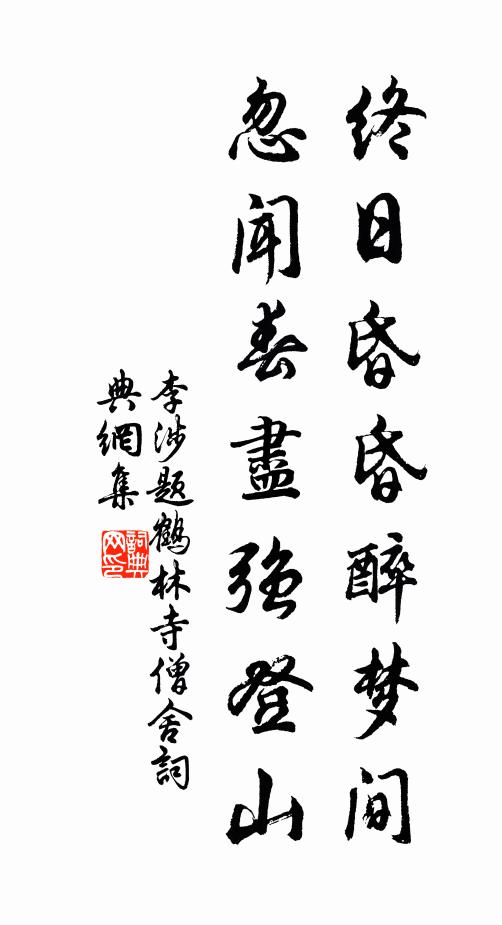 终日昏昏醉梦间
忽闻春盡强登山
李涉题鹤林寺僧舍詞
典網集
詞典
网印